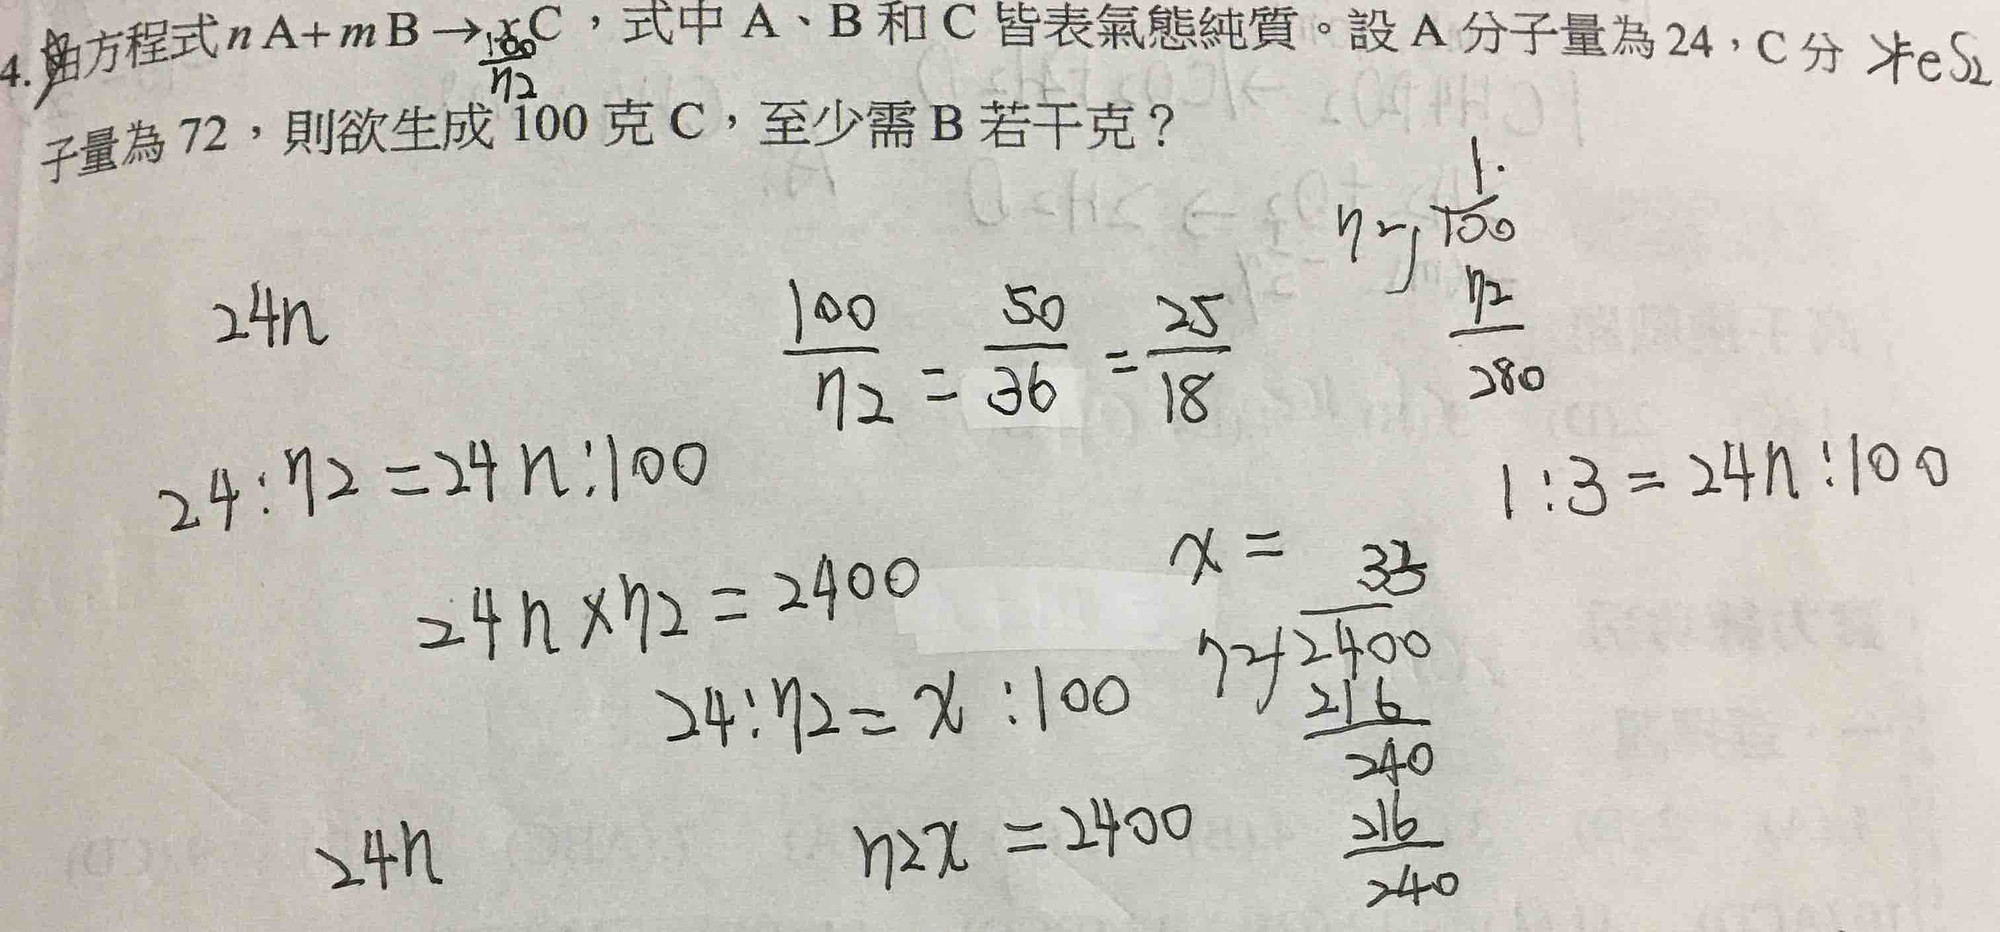 4. 由方程式 n A + m B → x C，式中 A、B 和 C 皆表氣態純質。設 A 分子量為 24，C 分
子量為 72，則欲生成 100 克 C，至少需 B 若干克？
100
72
24n
100/72 = 50/36 = 25/18
1.
72)100
72
280
24:72=24n:100
1:3=24n:100
24n×72=2400
x=
33
72)2400
216
240
216
240
24:72=x:100
72x=2400
24n